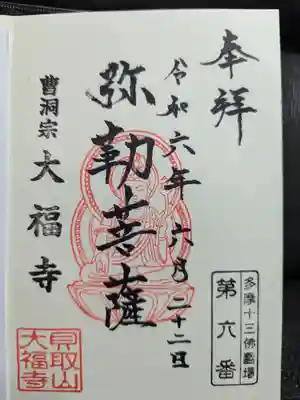 奉拝
令和六年 六月二十二日
弥勒菩薩
曹洞宗 大福寺
多摩十三佛霊場
第六番
貝取山
大福寺